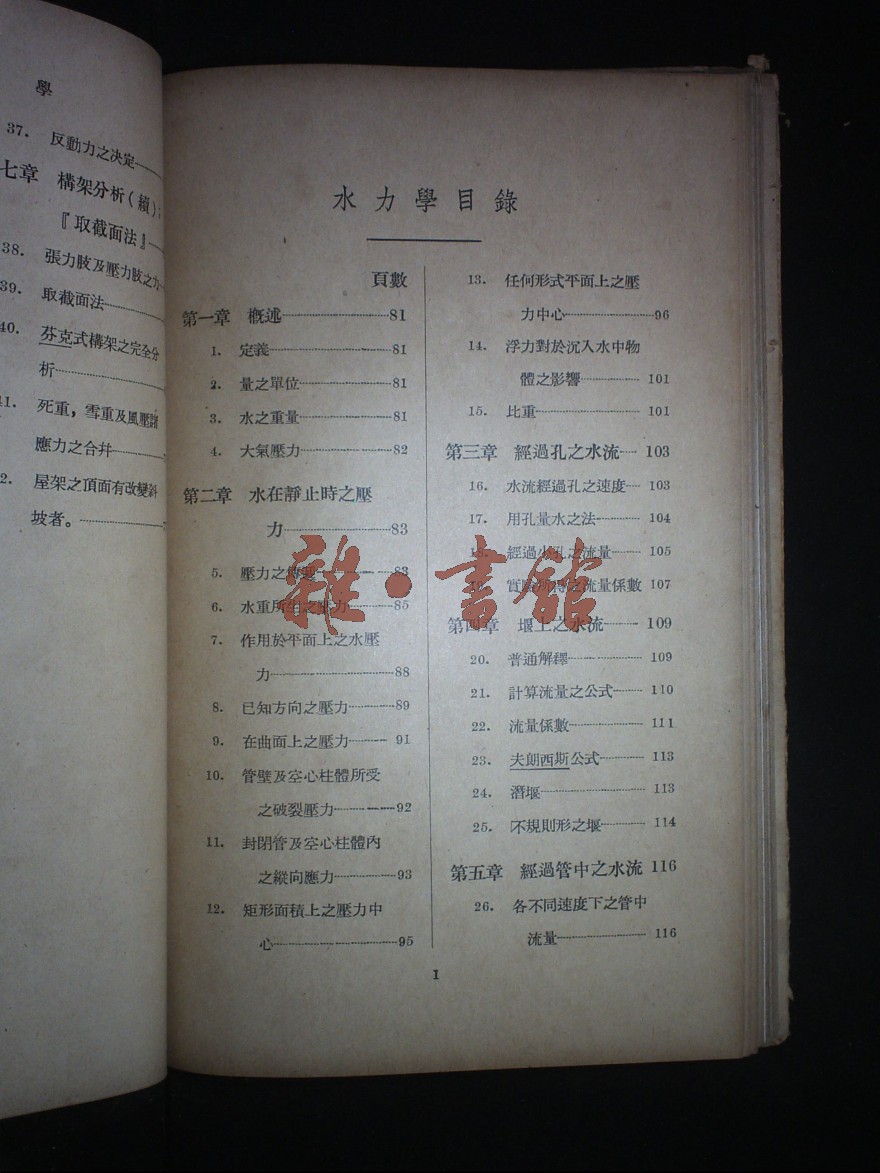 學
37. 反動力之決定
七章 構架分析(續):
『取截面法』
38. 張力肢及壓力肢之力
39. 取截面法
40. 芬克式構架之完全分
析
41. 死重,雪重及風壓諸
應力之合幷
2. 屋架之頂面有改變斜
坡者。
水力學目錄
頁數
第一章 概述 81
1. 定義 81
2. 量之單位 81
3. 水之重量 81
4. 大氣壓力 82
第二章 水在靜止時之壓
力 83
5. 壓力之傳遞 83
6. 水重所生之壓力 85
7. 作用於平面上之水壓
力 88
8. 已知方向之壓力 89
9. 在曲面上之壓力 91
10. 管壁及空心柱體所受
之破裂壓力 92
11. 封閉管及空心柱體內
之縱向應力 93
12. 矩形面積上之壓力中
心 95
13. 任何形式平面上之壓
力中心 96
14. 浮力對於沉入水中物
體之影響 101
15. 比重 101
第三章 經過孔之水流 103
16. 水流經過孔之速度 103
17. 用孔量水之法 104
18. 經過小孔之流量 105
19. 實驗所得之流量係數 107
第四章 堰上之水流 109
20. 普通解釋 109
21. 計算流量之公式 110
22. 流量係數 111
23. 夫朗西斯公式 113
24. 潛堰 113
25. 不規則形之堰 114
第五章 經過管中之水流 116
26. 各不同速度下之管中
流量 116
I
雜·書館